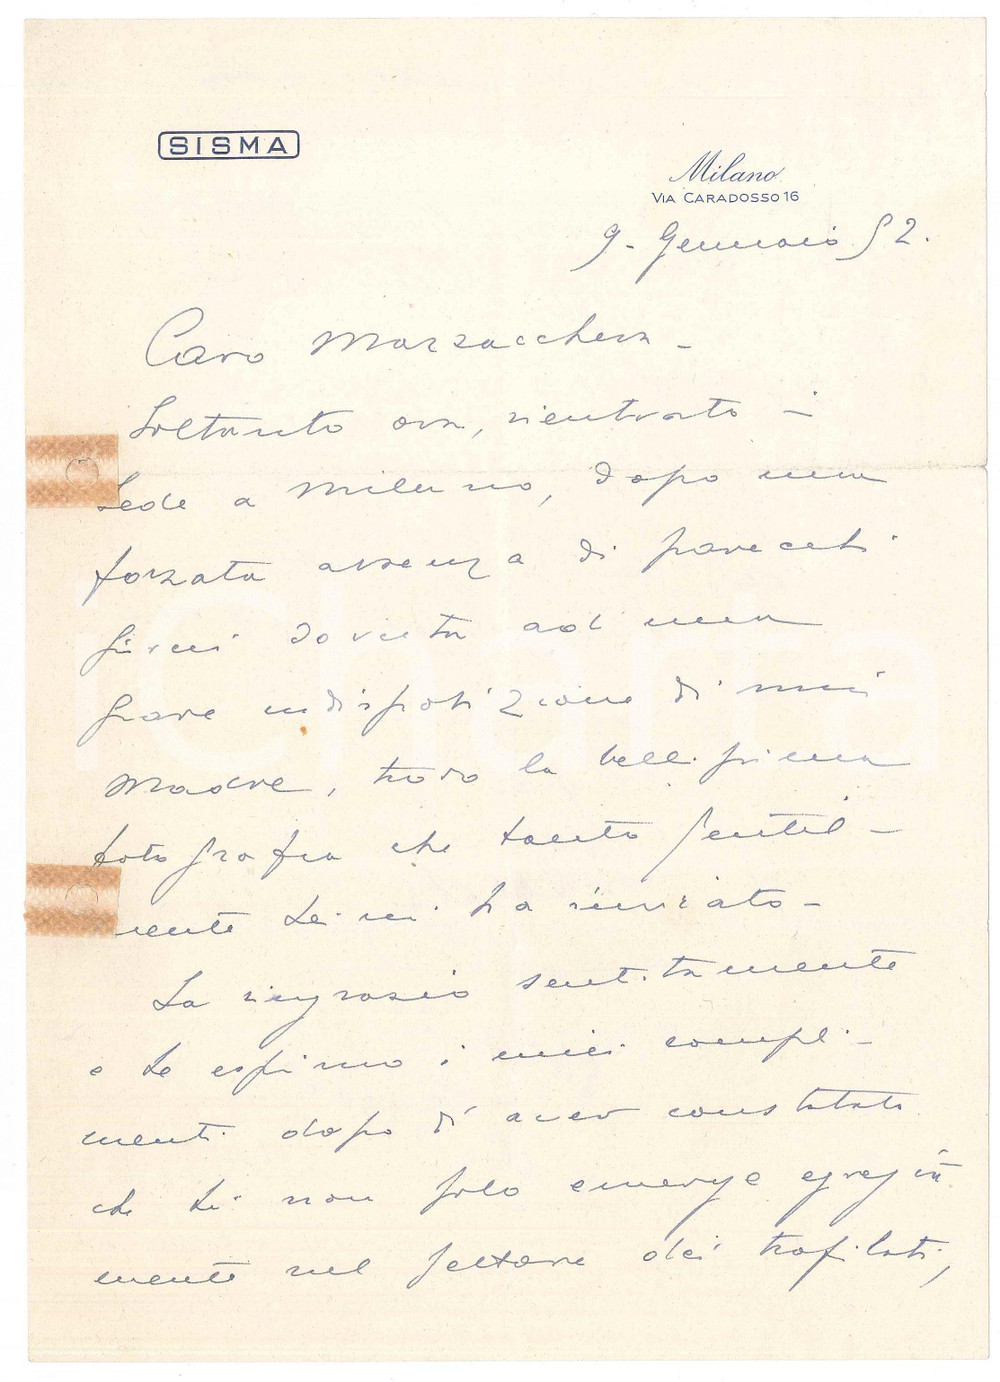 SISMA
Milano
VIA CARADOSSO 16
9. Gennaio 52.
Caro Marzacchera -
Soltanto ora, rientrato in
sede a Milano, dopo una
forzata assenza di parecchi
giorni dovuta ad una
grave indisposizione di mia
Madre, trovo la bellissima
fotografia che tanto gentil-
mente Lei mi ha inviato -
La ringrazio sentitamente
e Le esprimo i miei compli-
menti dopo di aver constatato
che Lei non solo emerge egregia
mente nel settore dei trafilati,